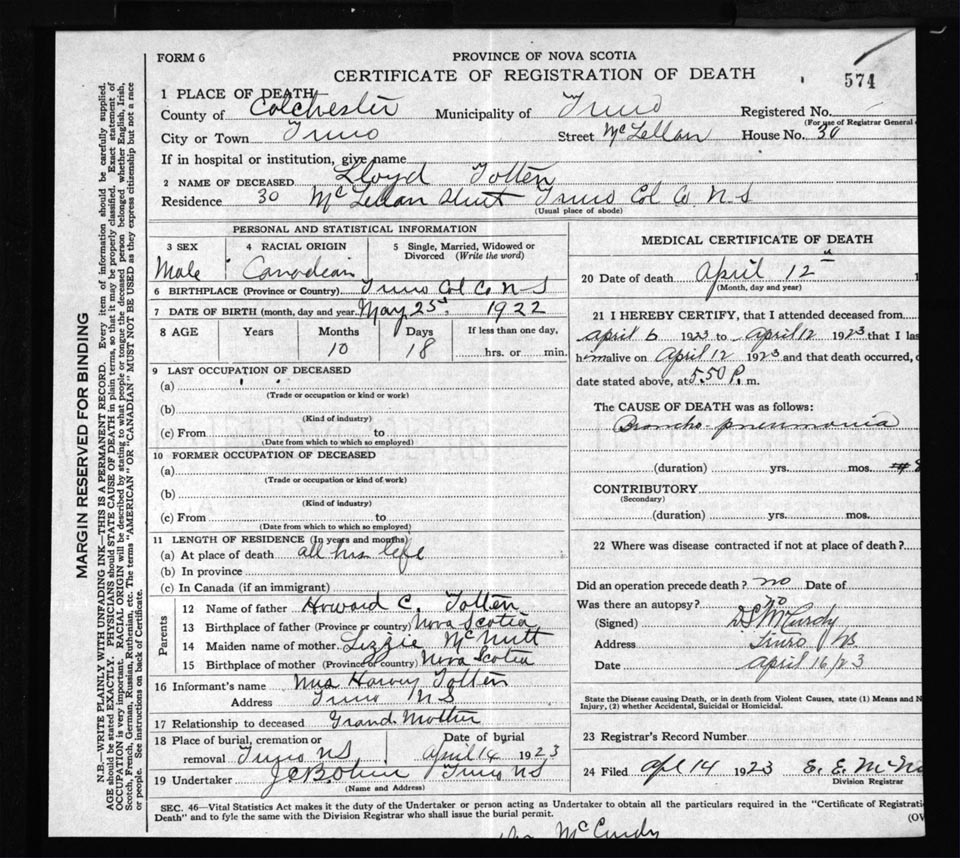 FORM 6
PROVINCE OF NOVA SCOTIA
CERTIFICATE OF REGISTRATION OF DEATH
574
1 PLACE OF DEATH
County of Colchester Municipality of Truro Registered No.
(For use of Registrar General
City or Town Truro Street McLellan House No. 30
If in hospital or institution, give name
2 NAME OF DECEASED Lloyd Totten
Residence 30 McLellan Street Truro Col Co. N.S
(Usual place of abode)
PERSONAL AND STATISTICAL INFORMATION
3 SEX
Male
4 RACIAL ORIGIN
Canadian
5 Single, Married, Widowed or
Divorced (Write the word)
6 BIRTHPLACE (Province or Country) Truro Col Co N-S
7 DATE OF BIRTH (month, day and year. May 25 1922
8 AGE Years Months Days If less than one day,
10 18 hrs. or min.
9 LAST OCCUPATION OF DECEASED
(a)
(Trade or occupation or kind or work)
(b)
(Kind of industry)
(c) From to
(Date from which to which so employed)
10 FORMER OCCUPATION OF DECEASED
(a)
(Trade or occupation or kind of work)
(b)
(Kind of industry)
(c) From to
(Date from which to which so employed)
11 LENGTH OF RESIDENCE (In years and months)
(a) At place of death all his life
(b) In province
(c) In Canada (if an immigrant)
Parents
12 Name of father Howard C. Totten
13 Birthplace of father (Province or country) Nova Scotia
14 Maiden name of mother. Lizzie McNutt
15 Birthplace of mother (Province or country) Nova Scotia
16 Informant's name Mrs Harvey Totten
Address Truro N S
17 Relationship to deceased Grand Mother
18 Place of burial, cremation or
removal Truro NS
Date of burial
April 14 1923
19 Undertaker Truro NS
(Name and Address)
MEDICAL CERTIFICATE OF DEATH
20 Date of death April 12
(Month, day and year)
21 I HEREBY CERTIFY, that I attended deceased from
April 6 1923 to April 12 1923 that I las
him alive on April 12 1923 and that death occurred,
date stated above, at 5.50 P. m.
The CAUSE OF DEATH was as follows:
Broncho-pneumonia
(duration) yrs. mos.
CONTRIBUTORY
(Secondary)
(duration) yrs. mos.
22 Where was disease contracted if not at place of death?
Did an operation precede death? no Date of
Was there an autopsy? no
(Signed) D S McCurdy
Address Truro NS
Date April 16/23
State the Disease causing Death, or in death from Violent Causes, state (1) Means and N
Injury, (2) whether Accidental, Suicidal or Homicidal.
23 Registrar's Record Number
24 Filed Apl 14 1923 E. E. McN
Division Registrar
SEC. 46—Vital Statistics Act makes it the duty of the Undertaker or person acting as Undertaker to obtain all the particulars required in the "Certificate of Registrati
Death" and to fyle the same with the Division Registrar who shall issue the burial permit.
(OV
McCurdy
MARGIN RESERVED FOR BINDING
N.B.—WRITE PLAINLY WITH UNFADING INK—THIS IS A PERMANENT RECORD. Every item of information should be carefully supplied.
AGE should be stated EXACTLY. PHYSICIANS should STATE CAUSE OF DEATH in plain terms, so that it may be properly classified. Exact statement of
OCCUPATION is very important. RACIAL ORIGIN will be described by stating to what people or tongue the deceased person belonged whether English, Irish,
Scotch, French, German, Russian, Ruthenian, etc. The terms "AMERICAN" OR "CANADIAN" MUST NOT BE USED as they express citizenship but not a race
or people. See instructions on back of Certificate.